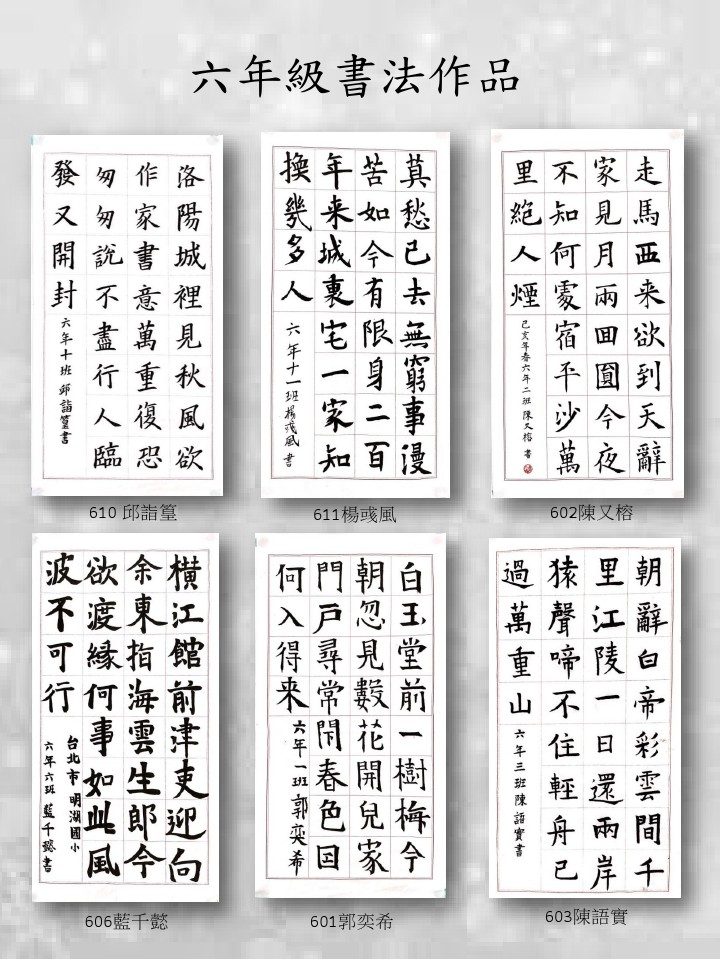 六年級書法作品
洛陽城裡見秋風欲
作家書意萬重復恐
匆匆說不盡行人臨
發又開封
六年十班 邱詣篁書
610 邱詣篁
莫愁已去無窮事漫
苦如今有限身二百
年来城裏宅一家知
換幾多人
六年十一班楊彧風書
611楊彧風
走馬西来欲到天辭
家見月兩回圓今夜
不知何處宿平沙萬
里絕人煙
己亥年春六年二班 陳又榕 書
602陳又榕
橫江館前津吏迎向
余東指海雲生郎今
欲渡緣何事如此風
波不可行
台北市 明湖國小
六年六班 藍千懿書
606藍千懿
白玉堂前一樹梅今
朝忽見數花開兒家
門戶尋常閇春色因
何入得来
六年一班郭奕希
601郭奕希
朝辭白帝彩雲間千
里江陵一日還兩岸
猿聲啼不住輕舟已
過萬重山
六年三班陳語實書
603陳語實